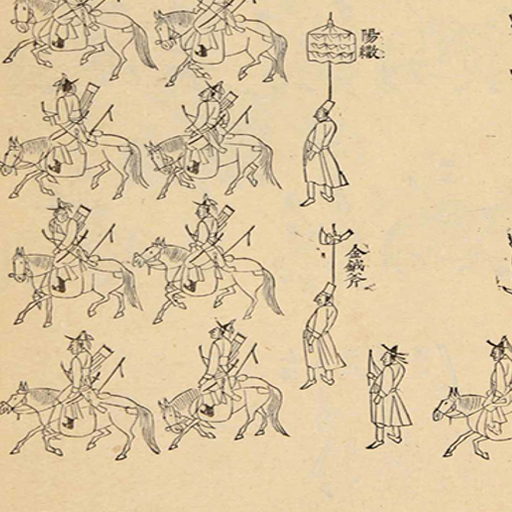 陽繖
金鉞斧